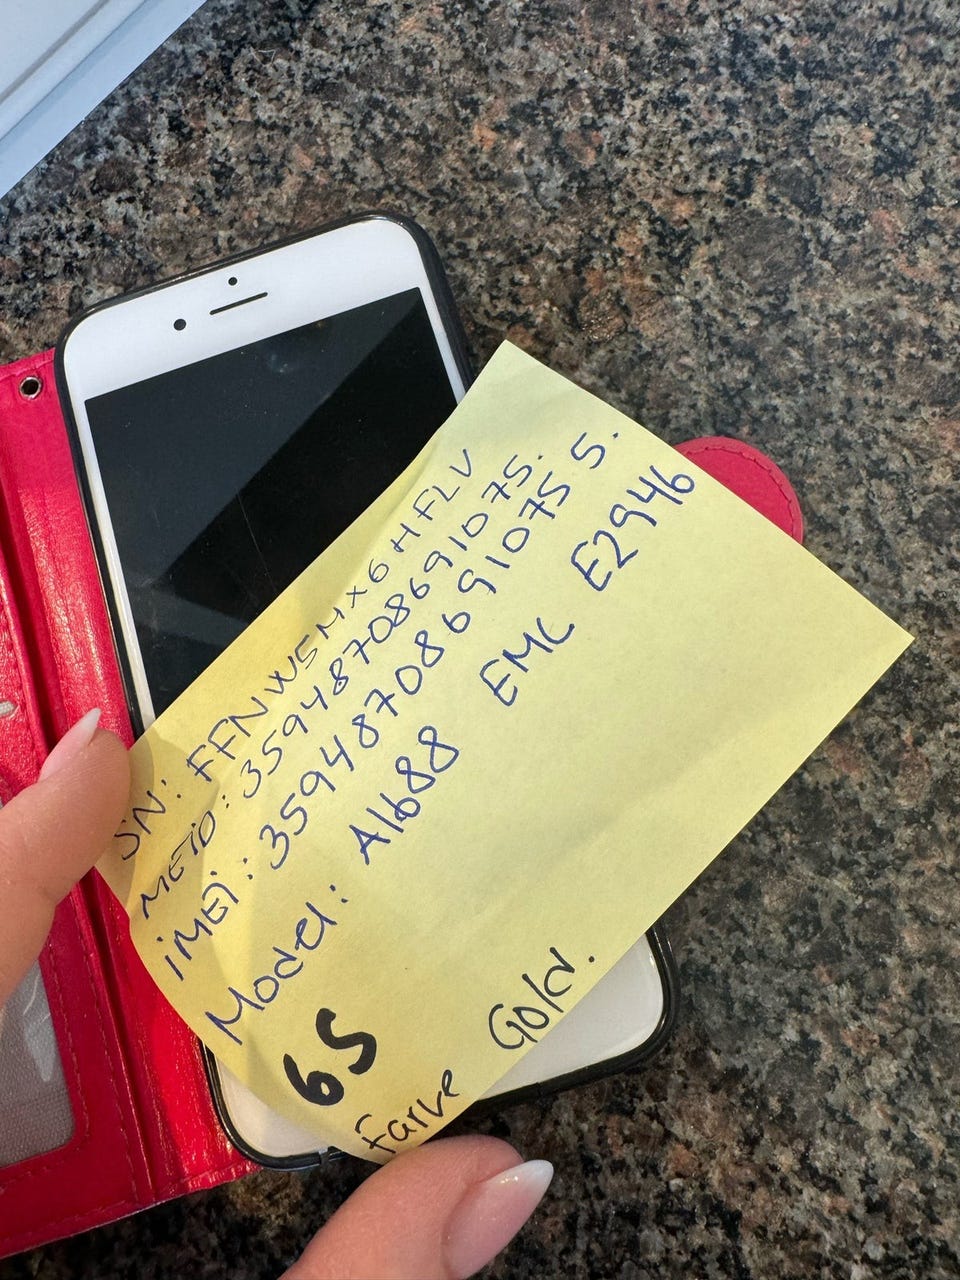 SN: FFNW5MX6HFLV
MEID: 35948708691075.
iMEi: 35948708691075 5.
Model: A1688 EMC E2946
6S
Farve Gold.